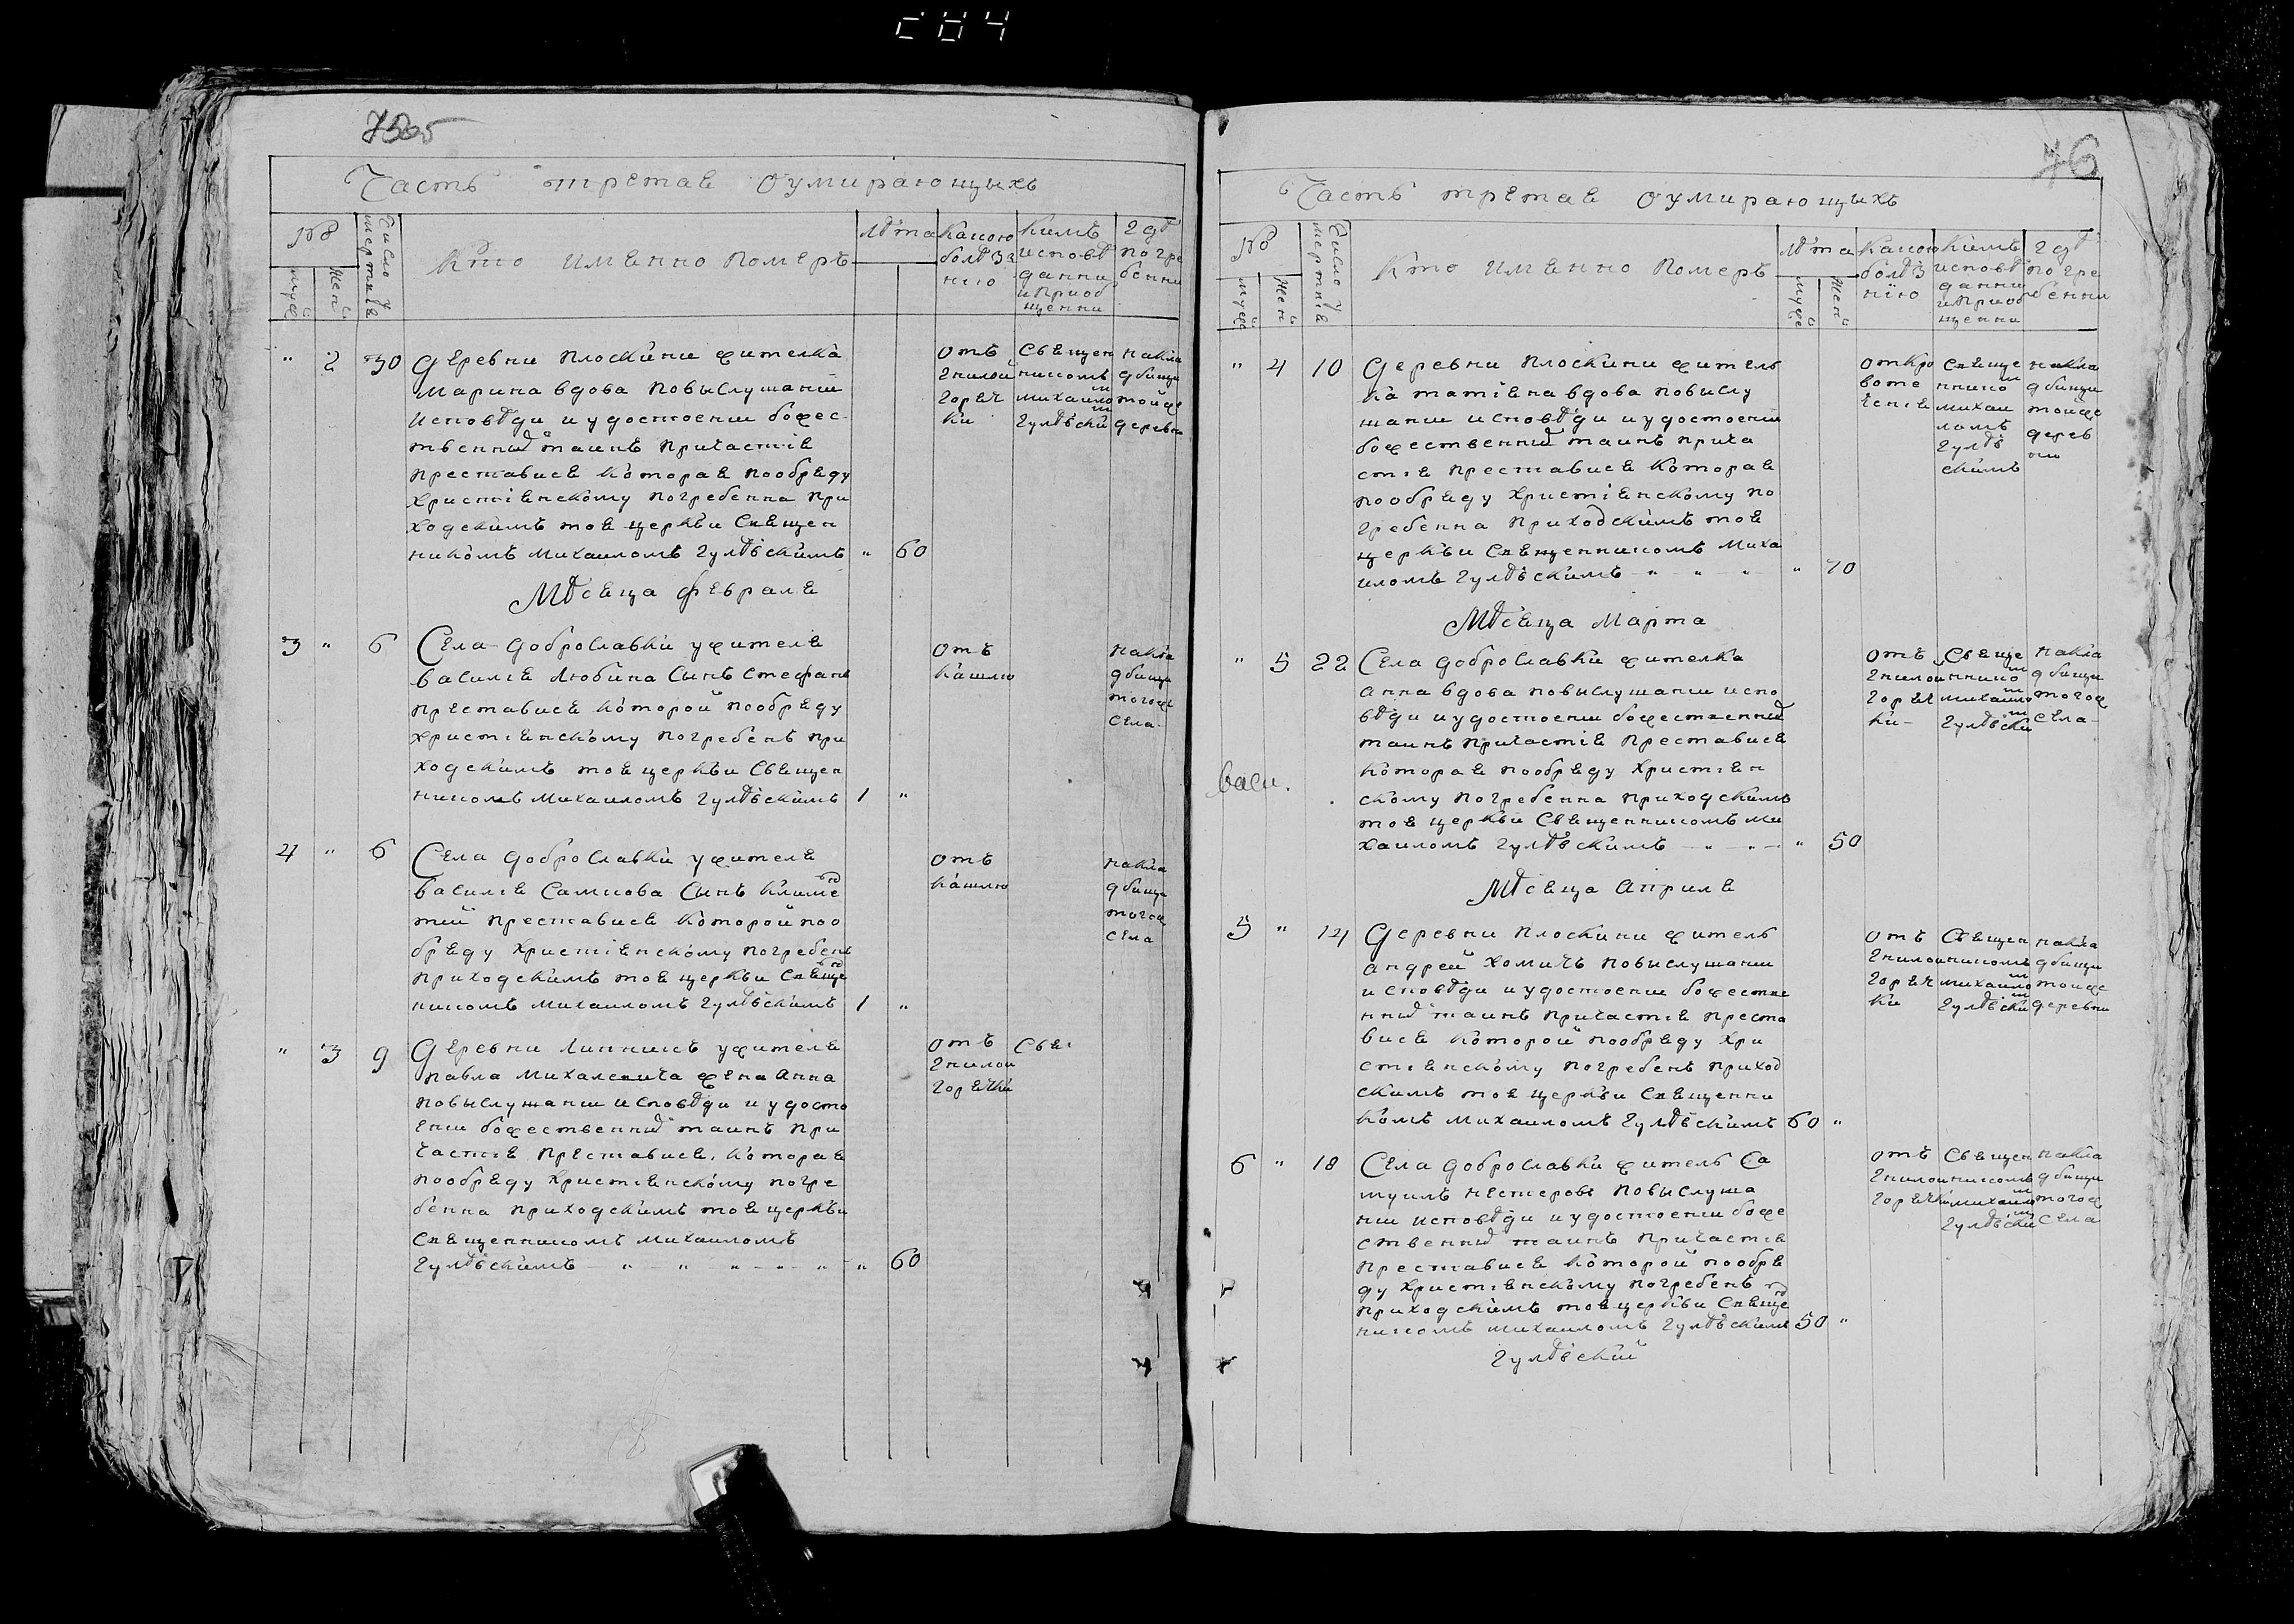 7505
Часть третая оумирающыхъ
№
Число умертвія
Кто имянно померъ
Лѣта
Какою болѣзнію
Кимъ исповѣданни и приобщенни
Гдѣ погребенни
муж
жен
" 2 30 Деревни Плоскини жителка
Марина вдова повыслушании
исповѣди и удостоении божес-
твенных таинъ причастія
преставися которая пообряду
христіянскому погребенна при
ходскимъ тоя церкви священ
никомъ Михаиломъ Гулѣвскимъ " 60
отъ
гнилой
горяч
ки
Священ
никомъ
Михаилом
Гулѣвским
накла
дбищи
тойже
деревни
Мѣсяца февраля
3 " 6 Села Доброславки ужителя
Василія Любина сынъ Стефанъ
преставися которой пообряду
христіянскому погребенъ при
ходскимъ тоя церкви священ
никомъ Михаиломъ Гулѣвскимъ 1 "
отъ
кашлю
накла
дбищи
тогож
села
4 " 6 Села Доброславки ужителя
Василія Самцова сынъ Климе
тий преставися которой поо
бряду христіянскому погребенъ
приходскимъ тоя церкви свяще
никомъ Михаиломъ Гулѣвскимъ 1 "
отъ
кашлю
накла
дбищи
тогож
села
" 3 9 Деревни Липникъ ужителя
Павла Михалевича жена Анна
повыслушании исповѣди и удосто
ении божественных таинъ при
частія преставися, которая
пообряду христіянскому погре
бенна приходскимъ тоя церкви
священникомъ Михаиломъ
Гулѣвскимъ " " " " " " 60
отъ
гнилои
горячки
Свя
76
Часть третая оумирающыхъ
№
Число умертвія
Кто имянно померъ
Лѣта
Какою болѣзнію
Кимъ исповѣданни и приобщенни
Гдѣ погребенни
муж
жен
муж
жен
" 4 10 Деревни Плоскини житель
ка Татіяна вдова повыслу
шании исповѣди и удостоении
божественных таинъ прича
стія преставися которая
пообряду христіянскому по
гребенна приходскимъ тоя
церкви священникомъ Миха
иломъ Гулѣвскимъ " " " " 70
от кро
воте
ченія
свяще
нником
Михаи
ломъ
Гулѣв
скимъ
накла
дбищи
тойже
дерев
ни
Мѣсяца Марта
" 5 22 Села Доброславки жителка
Анна вдова повыслушании испо
вѣди и удостоении божественных
таинъ причастія преставися
которая пообряду христіян
скому погребенна приходскимъ
тоя церкви священникомъ Ми
хаиломъ Гулѣвскимъ " " " 50
отъ
гнилои
горяч
ки
Свяще
нником
Михаилом
Гулѣвским
накла
дбищи
тогож
села
Васи.
Мѣсяца Априля
5 " 14 Деревни Плоскини житель
Андрей Хомичъ повыслушании
исповѣди и удостоении божестве
нных таинъ причастія преста
вися которой пообряду хри
стіянскому погребенъ приход
скимъ тоя церкви священни
комъ Михаиломъ Гулѣвскимъ 60 "
отъ
гнилои
горяч
ки
Священ
никомъ
Михаилом
Гулѣвским
накла
дбищи
тойже
деревни
6 " 18 Села Доброславки житель Са
муилъ Нестеровъ повыслуша
нии исповѣди и удостоении боже
ственных таинъ причастія
преставися которой пообря
ду христіянскому погребенъ
приходскимъ тоя церкви свяще
никомъ Михаиломъ Гулѣвскимъ 50 "
отъ
гнилои
горячки
Священ
никомъ
Михаилом
Гулѣвским
накла
дбищи
тогож
села
Гулѣвский